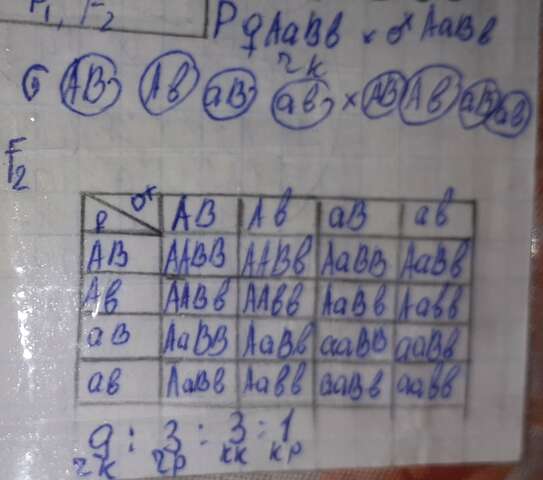 F₁, F₂
P ♀ AaBв × ♂ AaBв
чк
G AB Aв aB aв × AB Aв aB aв
F₂
♀ ♂ AB Aв aB aв
AB AABB AABв AaBB AaBв
Aв AABв AAвв AaBв Aaвв
aB AaBB AaBв aaBB aaBв
aв AaBв Aaвв aaBв aaвв
9 : 3 : 3 : 1
чк чр кк кр